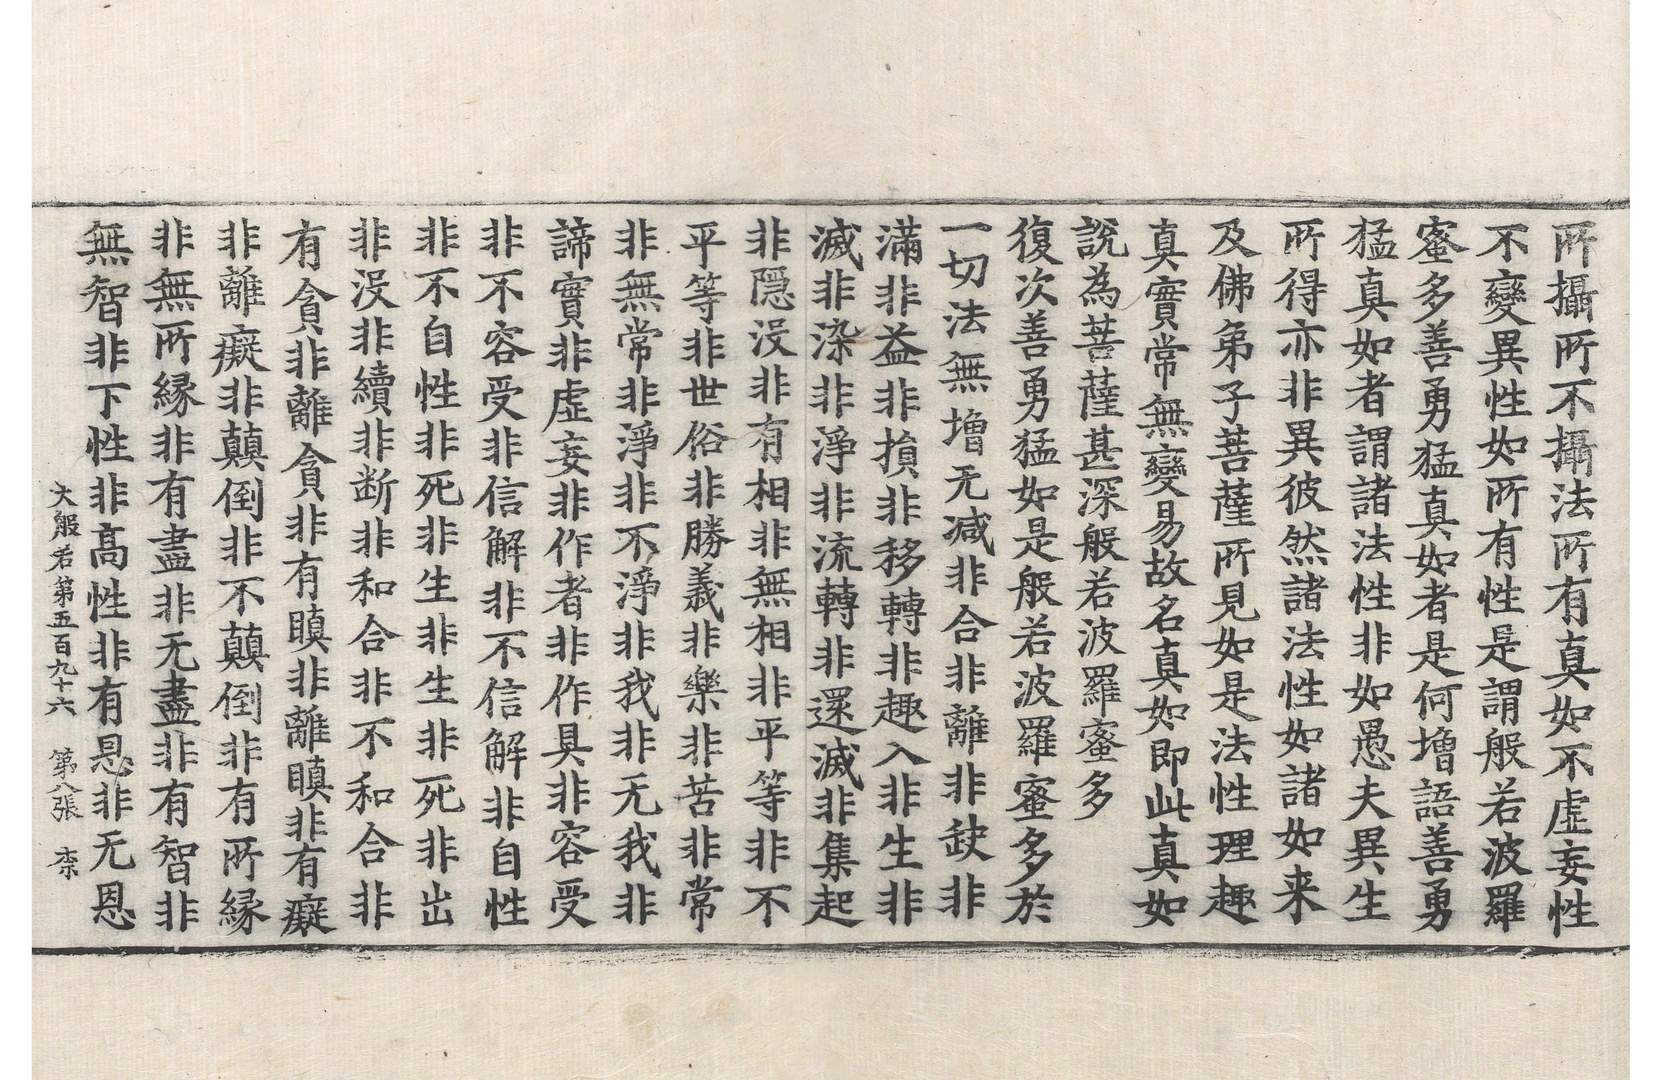 所攝所不攝法所有真如不虛妄性
不變異性如所有性是謂般若波羅
蜜多善勇猛真如者是何增語善勇
猛真如者謂諸法性非如愚夫異生
所得亦非異彼然諸法性如諸如来
及佛弟子菩薩所見如是法性理趣
真實常無變易故名真如即此真如
說為菩薩甚深般若波羅蜜多
復次善勇猛如是般若波羅蜜多於
一切法無增无减非合非離非缺非
滿非益非損非移轉非趣入非生非
滅非染非淨非流轉非還滅非集起
非隱没非有相非無相非平等非不
平等非世俗非勝義非樂非苦非常
非無常非淨非不淨非我非无我非
諦實非虛妄非作者非作具非容受
非不容受非信解非不信解非自性
非不自性非死非生非生非死非出
非没非續非断非和合非不和合非
有貪非離貪非有瞋非離瞋非有癡
非離癡非顛倒非不顛倒非有所縁
非無所縁非有盡非无盡非有智非
無智非下性非高性非有恩非无恩
大般若第五百九十六 第八張 柰